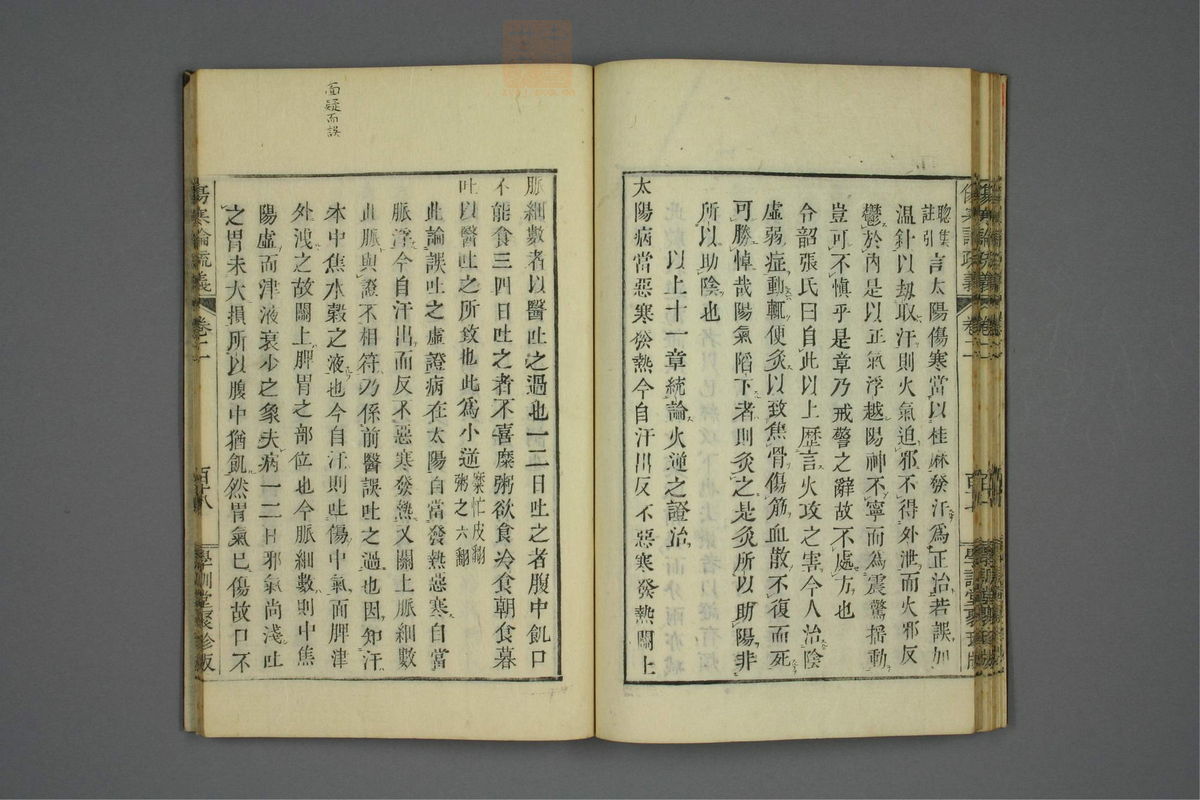 聰集
註引
言太陽傷寒當以桂麻發汗爲正治若誤加
温針以刼取汗則火氣迫邪不得外泄而火邪反
鬱於內是以正氣浮越陽神不寧而為震驚搖動
豈可不慎乎是章乃戒警之辭故不處方也
令韶張氏曰自此以上歷言火攻之害今人治陰
虛弱症動輒使灸以致焦骨傷筋血散不復而死
可勝悼哉陽氣陷下者則灸之是灸所以助陽非
所以助陰也
以上十一章統論火逆之證治
太陽病當惡寒發熱今自汗出反不惡寒發熱關上
脈細數者以醫吐之過也一二日吐之者腹中飢口
不能食三四日吐之者不喜糜粥欲食冷食朝食暮
吐以醫吐之所致也此爲小逆
糜忙皮翻
粥之六翻
此論誤吐之虛證病在太陽自當發熱惡寒自當
脈浮今自汗出而反不惡寒發熱又關上脈細數
此脈與證不相符乃係前醫誤吐之過也因知汗
本中焦水穀之液也今自汗則吐傷中氣面脾津
外洩之故關上脾胃之部位也今脈細數則中焦
陽虛而津液衰少之象夫病一二日邪氣尚淺吐
之胃未大損所以腹中猶飢然胃氣已傷故口不
傷寒論疏義
卷二
百十八
學訓堂聚珍版
面疑而誤